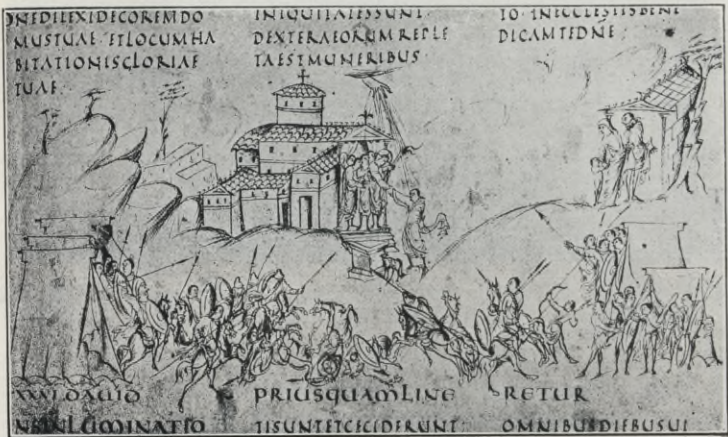 NEDILEXIDECOREMDO
MUSTUAE ETLOCUMHA
BITATIONISGLORIAE
TUAE
INIQUITATESSUNT
DEXTERAEORUMREPLE
TAESTMUNERIBUS
IO INECCLESIISBENE
DICAMTEDNE
XXVI DAUID PRIUSQUAMLINE RETUR
NSINLUMINATIO
TISUNTETCECIDERUNT
OMNIBUSDIEBUSUI